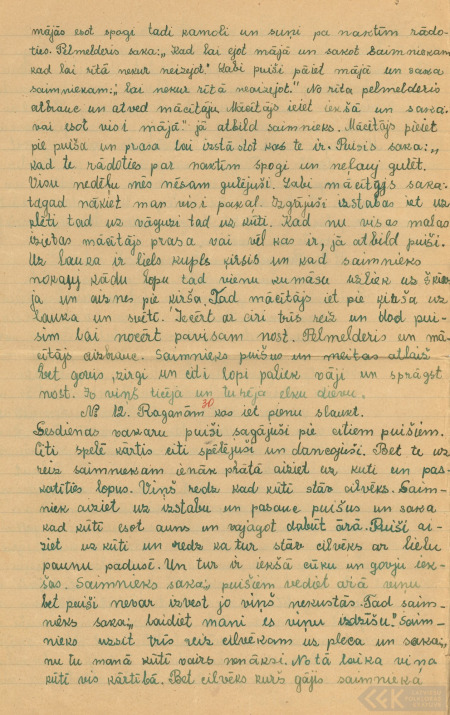 mājās esot spogi tad kamoli un suņi pa naktīm rādo-
ties. Pelmelderis saka: „Kad lai ejot mājā un sakot saimniekam
kad lai rītā nekur neizejot." Labi puiši pāiet mājā un saka
saimniekam: „lai nekur rītā neaizejot." No rīta pelmelderis
atbrauc un atved mācītāju. Mācītājs ieiet iekšā un saka:
vai esot visi mājā" jā atbild saimnieks. Mācītājs pieiet
pie puiša un prasa lai izstāstot kas te ir. Puisis saka: „
kad te rādoties par naktīm spogi un neļauj gulēt.
Visu nedēļu mēs nēsam gulējuši. Labi mācītājs saka:
tagad nākiet man visi pakaļ. Izgājuši izstabas iet uz
klēti tad uz vāguzi tad uz kūti. Kad nu visas malas
izietas mācītājs prasa vai vēl kas ir, jā atbild puiši.
Uz lauka ir liels kupls ķirsis un kad saimnieks
nokauj kādu lopu tad vienu kumāsu uzliek uz šķīv
ja un aiznes pie ķirša. Tad mācītājs iet pie ķirša uz
lauka un svētī. Iecērt ar ciri trīs reiz un dod pui-
šim lai nocērt pavisam nost. Pelmelderis un mā-
cītājs aizbrauc. Saimnieks puišus un meitas atlaiž
bet govis, zirgi un citi lopi paliek vāji un sprāgst
nost. Jo viņš ticējā un lūdzējā elku dievu.
№ 12. Raganām kas iet pienu slaukt.
30
Sesdienas vakaru puiši sagājuši pie citiem puišiem.
Citi spēlē kārtis citi spēlējuši un dancojuši. Bet te uz
reiz saimniekam ienāk prātā aiziet uz kuti un pas-
katīties lopus. Viņš redz kad kūtī stāv cilvēks. Saim-
niek aiziet uz izstabu un pasauc puišus un saka
kad kūtī esot auns un vajagot dabūt ārā. Puiši ai-
ziet uz kūti un redz ka tur stāv cilvēks ar lielu
paunu padusē. Un tur ir iekšā cūku un govju iek-
šas. Saimnieks saka: „puišiem vediet ārā viņu
bet puiši nevar izvest jo viņš nekustās. Tad saim-
nieks saka: „laidiet mani es viņu izdzīšu." Saim-
nieks uzsit trīs reiz cilvēkam uz pleca un saka: „
nu tu manā kūtī vairs nenāksi. No tā laika viņa
kūtī vis kārtībā. Bet cilvēks kurš gājis saimniekā